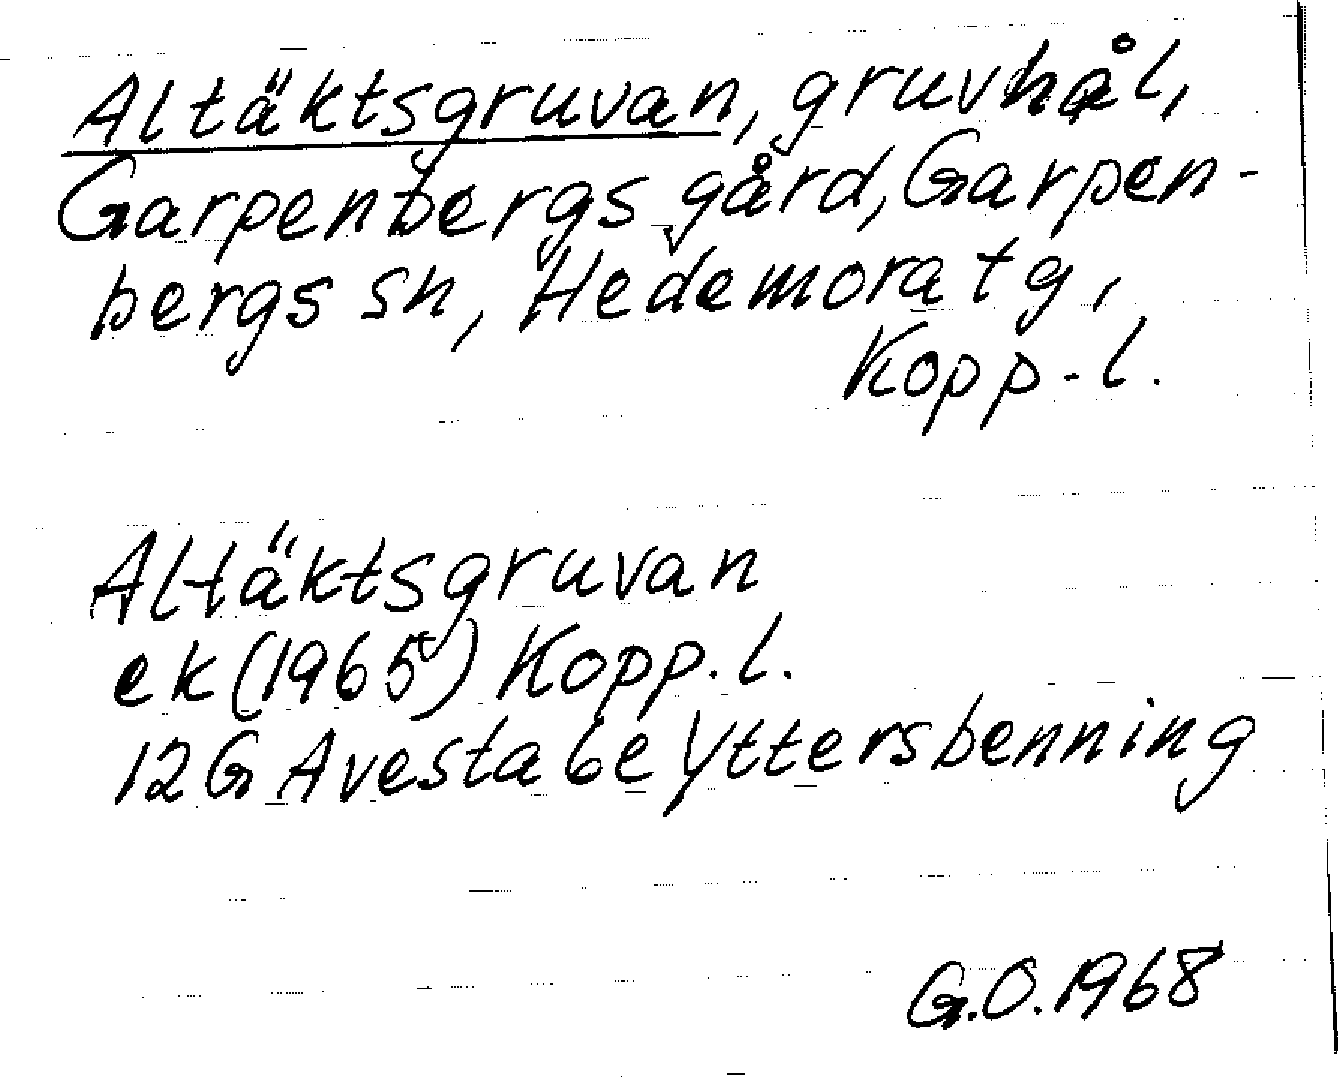 Altäktsgruvan, gruvhål,
Garpenbergs gård, Garpen-
bergs sn, Hedemora tg,
Kopp. l.
Altäktsgruvan
ek (1965) Kopp. l.
12G Avesta 6e Yttersbenning
G.O. 1968